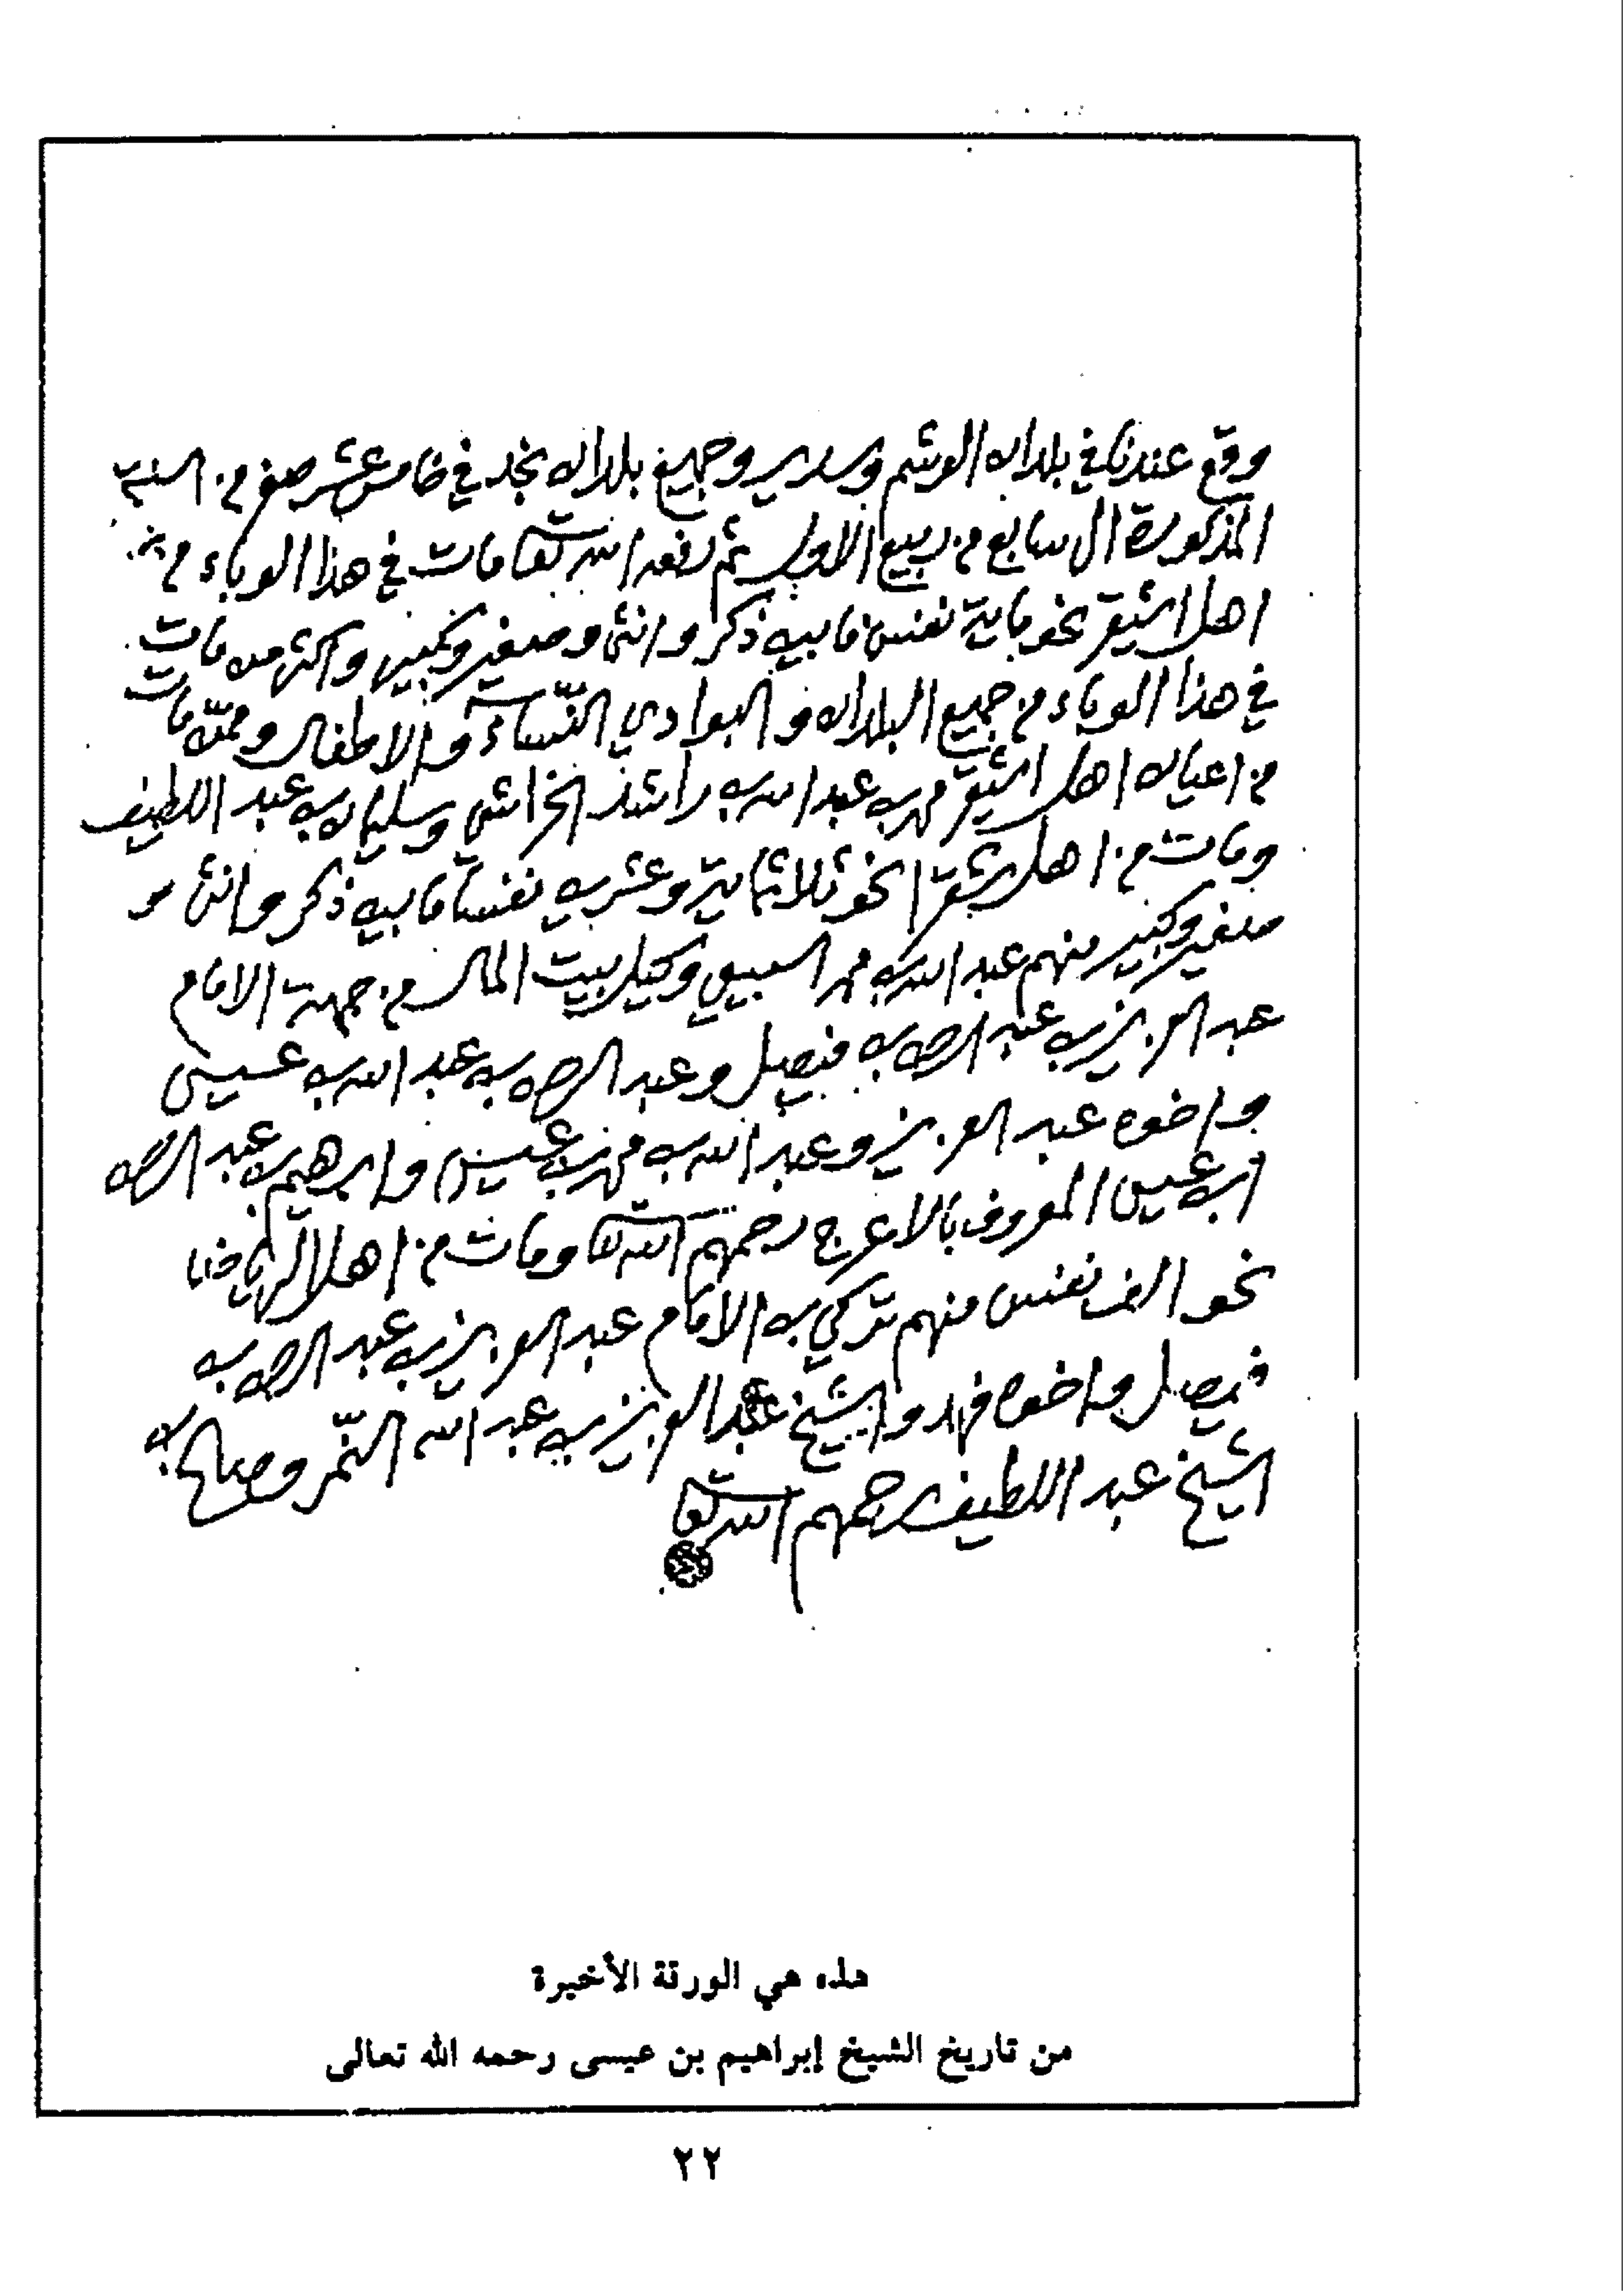 وقع عندنا في بلدان الوشم وسدير وجميع بلدان نجد في خامس عشر صفر من السنة
المذكورة الى سابع من ربيع الاول ثم رفعه الله تعا مات في هذا الوباء من
اهل اشيقر نحو ماية نفس مابين ذكر وانثى وصغير وكبير واكثر من مات
في هذا الوباء من جميع البلدان والبوادي النّساء والاطفال وممّن مات
من اعيان اهل اشيقر محمد بن عبد الله بن راشد الخراشي وسليمان بن عبد اللطيف
ومات من اهل شقرا نحو ثلاثماية وعشرين نفساً مابين ذكر وانثى و
صغير وكبير منهم عبد الله بن محمد السبيعي وكيل بيت المال من جهة الامام
عبد العزيز بن عبد الرحمن بن فيصل وعبد الرحمن بن عبد الله بن عيسى
واخوه عبد العزيز وعبد الله بن محمد بن عيسى وابرهيم بن عبد الرحمن
ابن عيسى المعروف بالاعرج رحمهم الله تعا ومات من اهل الرياض
نحو الف نفس منهم تركي بن الامام عبد العزيز بن عبد الرحمن بن
فيصل واخوه فهد والشيخ عبد العزيز بن عبد الله النّمر وصالح بن
الشيخ عبد اللطيف رحمهم الله تعا
هذه هي الورقة الأخيرة
من تاريخ الشيخ إبراهيم بن عيسى رحمه الله تعالى
٢٢